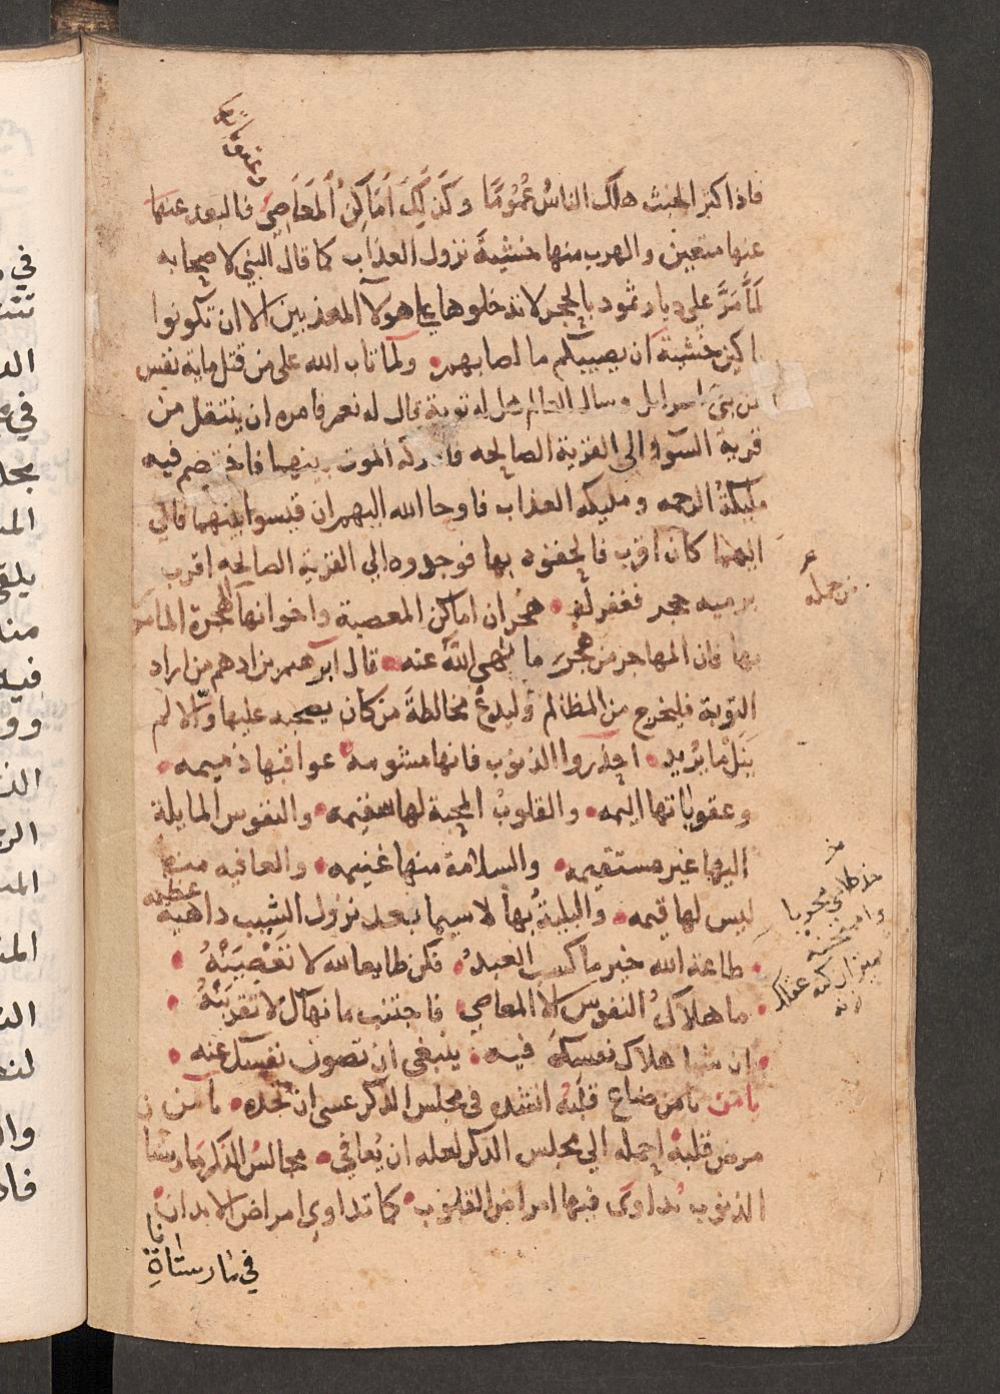 فاذا كثر الخبث هلك الناس عُمُومًا وكَذَلِكَ اَمَاكِنُ اْلمَعَاصِي فالبعد عنها
عنها متعين والهرب منها خشيةَ نزول العذاب كما قال النبي لاصحابه
لَمَّا مَرَّ على ديار ثمود بالحجر لا تدخلوها على هولآ المعذبين الا ان تكونوا
باكين خشية ان يصيبكم ما اصابهم ولمّا تاب الله على من قتل ماية نفس
من بنى اسرايل وسال العالم هل له توبة قال له نعم فامره ان ينتقل من
قرية السوٓ الى القرية الصالحه فادركه الموت بينهما فاختصم فيه
مليكة الرحمه ومليكه العذاب فاوحا الله اليهم ان قيسوا بينهما فالي
ايهما كان اقرب فالحقوه بها فوجدوه الي القرية الصالحه اقرب
برميه حجر فغفر له هجْران اماكن المعصية واخوانها الهجرة المامور
بها فان المهاجر من هَجَرَ ما نهى اللهُ عنه قال ابرهيم بن ادهم من اراد
التوبة فليخرج من المظالم وليدعْ مخالطةَ من كان يصحبه عليها والا لم
يَنَلْ ما يُريد احذروا الذنوب فانها مشومةٌ عواقبها ذميمه
وعقوباتها اليمه والقلوبُ المحبة لها سقيمه والنفوس المايلة
اليها غير مستقيمه والسلامة منها غنيمه والعافيه منها
ليس لها قيمه والبليةُ بها لاسيما بعد نزول الشيب داهية عظيمه
طاعة الله خير ما كسب العبدُ فكن طايعا لله لا تَعْصِيَنْهُ
ما هلاكُ النفوس الا المعاصي فاجتنب ما نهاك لا تقربَنْهُ
ان شيا هلاك نفسكَ فيه ينبغي ان تصون نفسك عنه
يامن يامن ضاع قلبُه انشده في مجلس الذكر عسى ان تجده يا من
مرض قلبهُ احمله الي مجلس الذكر لعله ان يُعافى مجالسُ الذكر مارستا
الذنوب تداوى فيها امراض القلوب كما تداوي امراض الابدان
في مارستانات